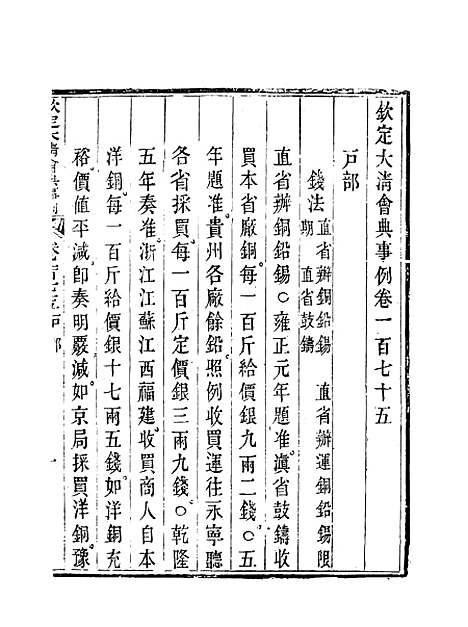 欽定大清會典事例卷一百七十五
戶部
錢法 直省辦銅鉛錫 直省辦運銅鉛錫限
期 直省鼓鑄
直省辦銅鉛錫○雍正元年題准滇省鼓鑄收
買本省廠銅每一百斤給價銀九兩二錢○五
年題准貴州各廠餘鉛照例收買運往永寧聽
各省採買每一百斤定價銀三兩九錢○乾隆
五年奏准浙江江蘇江西福建收買商人自本
洋銅每一百斤給價銀十七兩五錢如洋銅充
裕價値平減卽奏明覈減如京局採買洋銅豫
欽定大清會典事例 卷一百七十五 戶部 一